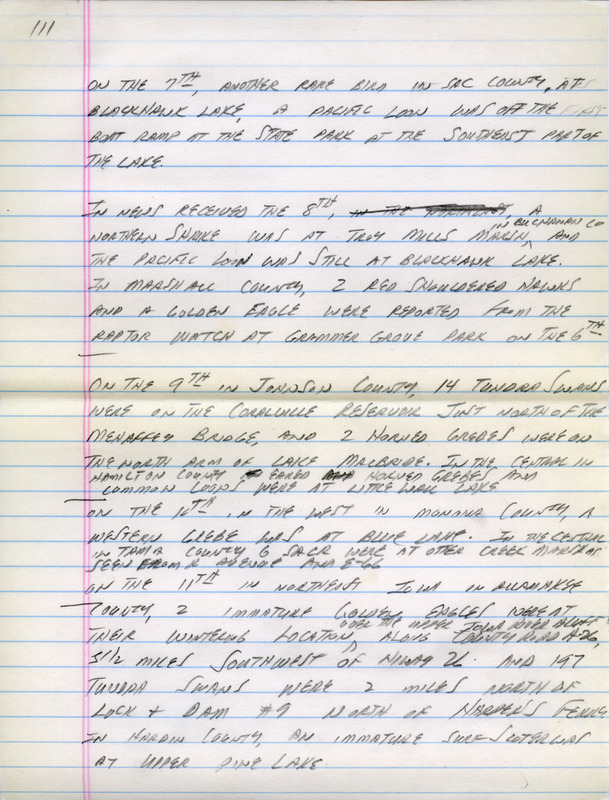 111
ON THE 7TH, ANOTHER RARE BIRD IN SAC COUNTY, AT
BLACKHAWK LAKE, A PACIFIC LOON WAS OFF THE FIRST
BOAT RAMP AT THE STATE PARK AT THE SOUTHEAST PART OF
THE LAKE.
IN NEWS RECEIVED THE 8TH, IN THE NORTHEAST, A
IN BUCHANAN CO
NORTHERN SHRIKE WAS AT TROY MILLS MARSH, AND
THE PACIFIC LOON WAS STILL AT BLACKHAWK LAKE.
IN MARSHALL COUNTY, 2 RED SHOULDERED HAWKS
AND A GOLDEN EAGLE WERE REPORTED FROM THE
RAPTOR WATCH AT GRAMMER GROVE PARK ON THE 6TH
ON THE 9TH IN JOHNSON COUNTY, 14 TUNDRA SWANS
WERE ON THE CORALVILLE RESERVOIR JUST NORTH OF THE
MEHAFFEY BRIDGE, AND 2 HORNED GREBES WERE ON
THE NORTH ARM OF LAKE MACBRIDE. IN THE CENTRAL IN
HAMILTON COUNTY EARED HORNED GREBES AND
COMMON LOONS WERE AT LITTLE WALL LAKE
ON THE 10TH, IN THE WEST IN MONONA COUNTY, A
WESTERN GREBE WAS AT BLUE LAKE. IN THE CENTRAL
IN TAMA COUNTY 6 SACR WERE AT OTTER CREEK MARSH AS
SEEN FROM R AVENUE AND E-66
ON THE 11TH IN NORTHEAST IOWA IN ALLAMAKEE
COUNTY, 2 IMMATURE GOLDEN EAGLES WERE AT
OVER THE UPPER IOWA RIVER BLUFF
THEIR WINTERING LOCATION, ALONG COUNTY ROAD A-26,
3 1/2 MILES SOUTHWEST OF HIWAY 26. AND 197
TUNDRA SWANS WERE 2 MILES NORTH OF
LOCK + DAM #9 NORTH OF HARPER'S FERRY
IN HARDIN COUNTY, AN IMMATURE SURF SCOTER WAS
AT UPPER PINE LAKE.